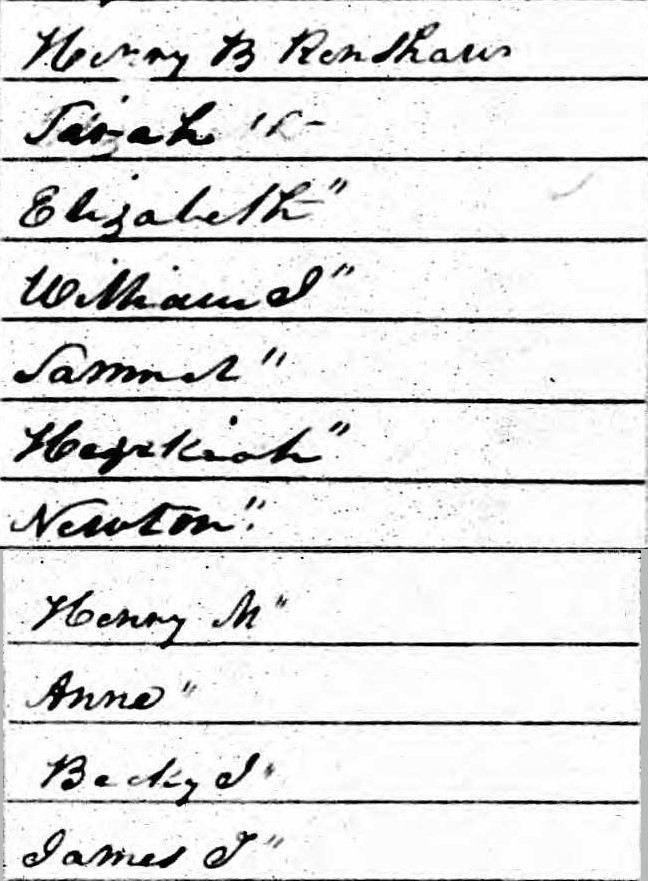 Henry B Renshaw
Sarah "
Elizabeth "
William J "
Samuel "
Hezekiah "
Newton "
Henry M "
Anne "
Becky J "
James T "